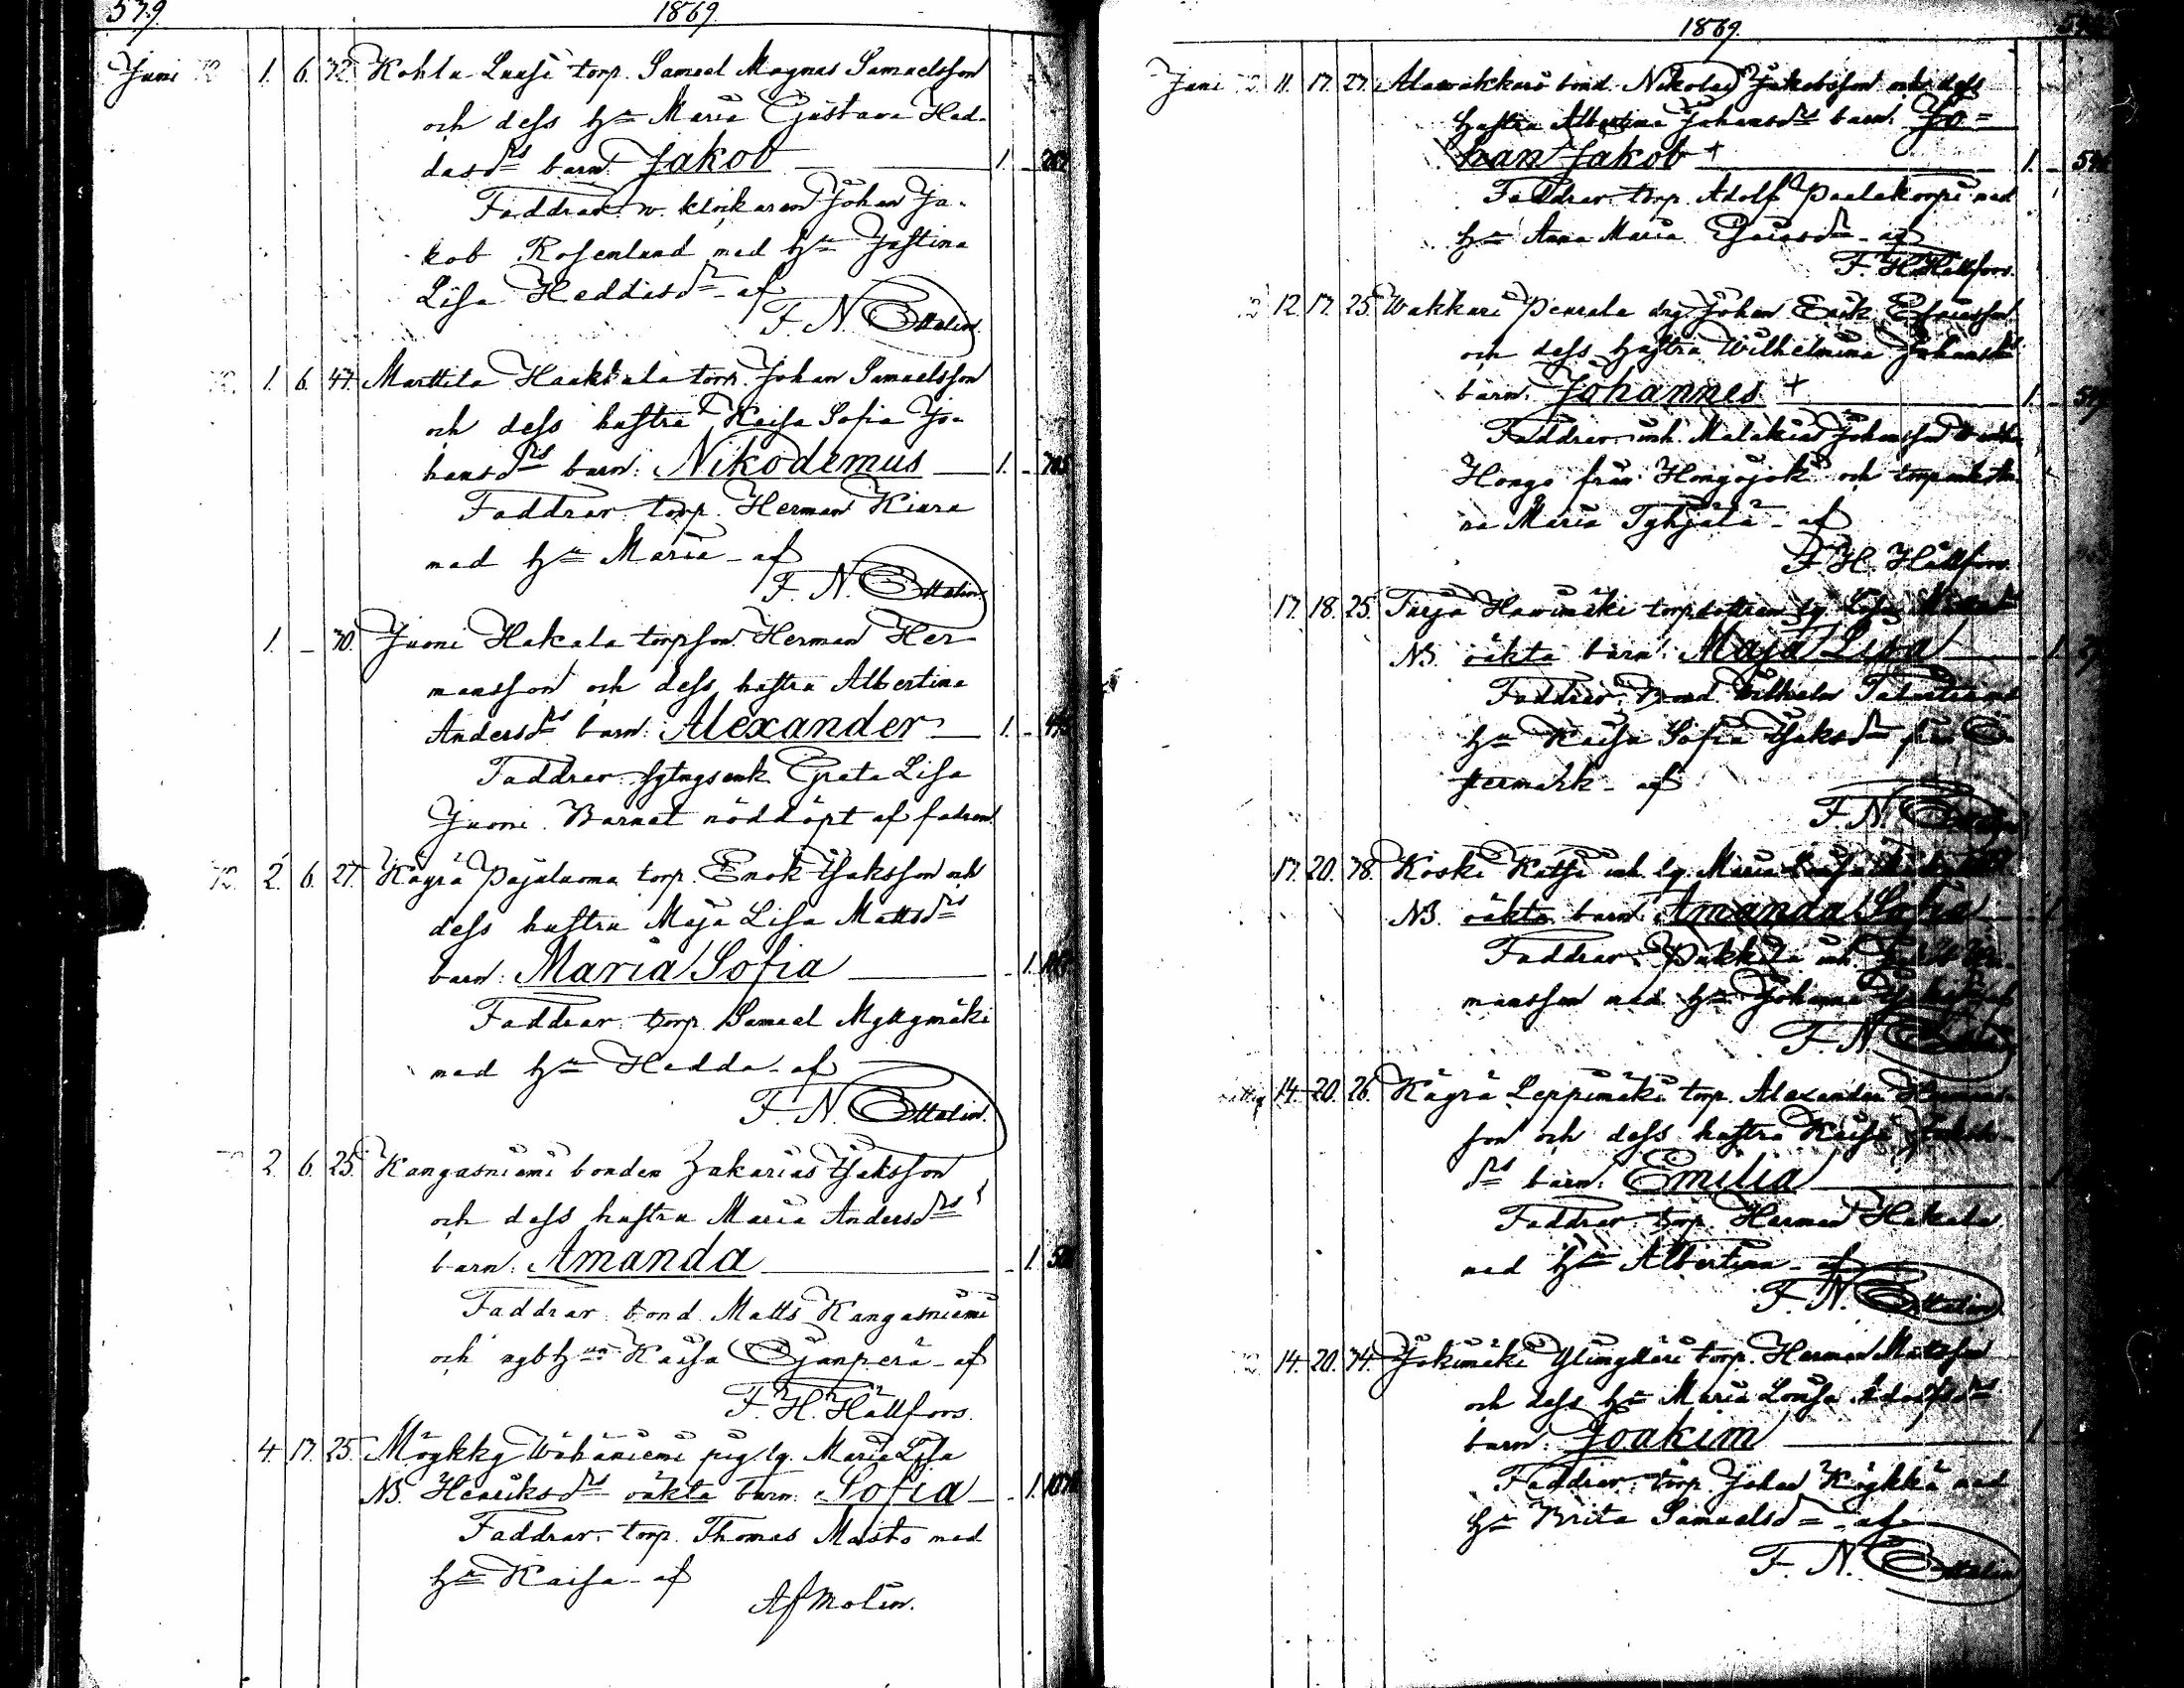 579. 1869.
Juni 1. 6. 72. Kohlu Luasi torp. Samuel Magnus Samuelsson
och dess hu Maria Gustava Hed-
dasdrs barn: Jakob 1.
Faddrar: v. klockaren Johan Ja-
kob Rosenlund med hu Justina
Lisa Heddasdr af
F. N. Ettalin.
1. 6. 47. Marttila Haakkala torp. Johan Samuelsson
och dess hustru Kaisa Sofia Jo-
hansdrs barn: Nikodemus 1.
Faddrar: torp. Herman Kiura
med hu Maria - af
F. N. Ettalin.
1. - 70. Juoni Hakala torpson Herman Her-
mansson och dess hustru Albertina
Andersdrs barn: Alexander 1.
Faddrar: sytngsenk. Greta Lisa
Juoni. Barnet nöddöpt af fadren.
2. 6. 27. Käyrä Pajuluoma torp. Enok Isaksson och
dess hustru Maja Lisa Mattsdrs
barn: Maria Sofia 1.
Faddrar: torp. Samuel Myllymäki
med hu Hedda - af
F. N. Ettalin.
2. 6. 25. Kangasniemi bonden Zakarias Isaksson
och dess hustru Maria Andersdrs
barn: Amanda 1.
Faddrar: bond. Matts Kangasniemi
och ngbhun Kaisa Ojanperä - af
F. H. Hällfors.
4. 17. 25. Mögkky Wähäniemi pig. lg. Maria Lisa
NB. Henriksdrs oäkta barn: Sofia 1.
Faddrar: torp. Thomas Masto med
hu Kaisa - af
Af Molin.
1869.
Juni 11. 17. 27. Alawakkuri bond. Nikolai Jakobsson och dess
hustru Albertina Johansdrs barn: Jo=
han Jakob + 1.
Faddrar: torp. Adolf Paalakorpi med
hu Anna Maria - af
F. H. Hällfors.
12. 17. 25. Wakkuri Penrala drg. Johan Erik Esaiasson
och dess hustru Wilhelmina Johansdrs
barn: Johannes + 1.
Faddrar: inh. Malakias Johansson
Hongo från Hongojoki och
na Maria Tyhjälä - af
F. H. Hällfors.
17. 18. 25. Turja Hawimäki torpdottren lg. Lisa
NB. oäkta barn: Maja Lisa 1.
Faddrar: Bond. Wilhelm
hu Kaisa Sofia Isaksdr från Ö-
stermark - af
F. N. Ettalin
17. 20. 78. Koski Katsi inh. lg. Maria Lovisa
NB. oäkta barn: Amanda Sofia 1.
Faddrar: Pukkila inh.
mansson med hu Johanna
F. N. Ettalin
14. 20. 26. Käyrä Leppimäki torp. Alexander Hermans-
son och dess hustru Kaisa
drs barn: Emilia 1.
Faddrar: torp. Herman Hakala
med hu Albertina - af
F. N. Ettalin.
14. 20. 74. Jokimäki Ylimylläri torp. Herman Mattsson
och dess hu Maria Lovisa Adolfsdrs
barn: Joakim 1.
Faddrar: torp. Johan Köykkä med
hu Brita Samuelsdr - af
F. N. Ettalin